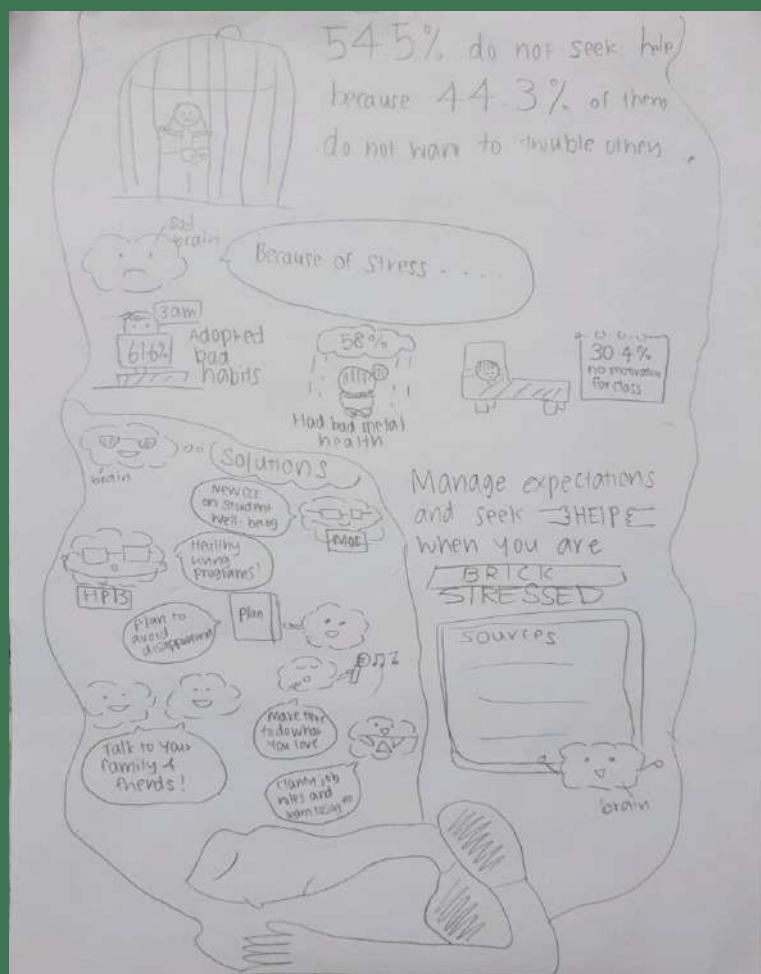 54.5% do not seek help
because 44.3% of them
do not want to trouble others.
sad
brain
Because of stress . . . . .
3am
61.6%
Adopted
bad
habits
58%
Had bad metal
health
30.4%
no motivation
for class
brain
Solutions
New CCE
on student
well-being
MOE
Healthy
living
programs!
HPB
Plan to
avoid
disappointment
Plan
Make time
to do what
you love
Talk to your
family &
friends!
Clarify job
roles and
learn to say no
Manage expectations
and seek HELP
when you are
BRICK
STRESSED
Sources
brain